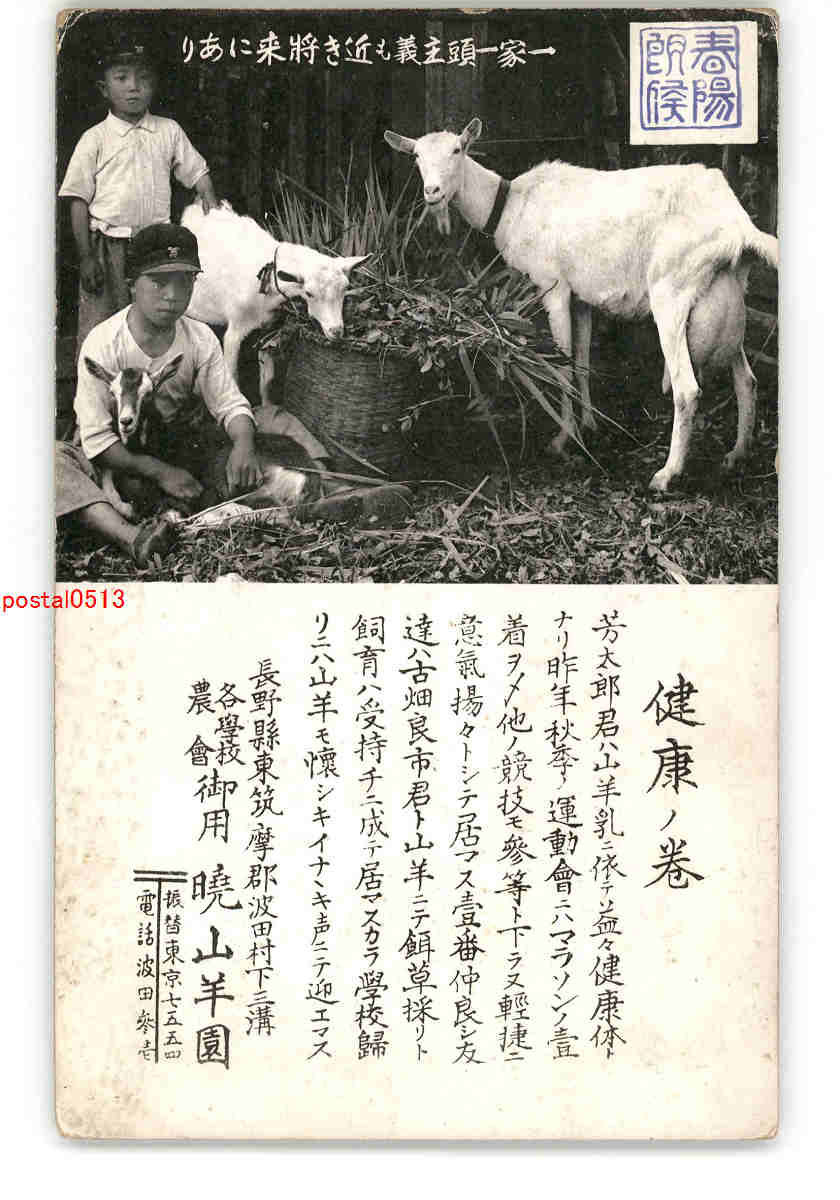 一家一頭主義も近き將来にあり
春陽
postal0513
健康ノ巻
芳太郎君ハ山羊乳ニ依テ益々健康体ト
ナリ昨年秋季ノ運動會ニハマラソンノ壹
着ヲシメ他ノ競技モ參等ト下ラヌ輕捷ニ
意氣揚々トシテ居マス壹番仲良シ友
達ハ古畑良市君ト山羊ニテ餌草採リト
飼育ハ受持チニ成テ居マスカラ學校歸
リニハ山羊モ懷シキイナヽキ声ニテ迎エマス
長野縣東筑摩郡波田村下三溝
各學校
農會
御用 曉山羊園
振替東京七五五四
電話波田參壱